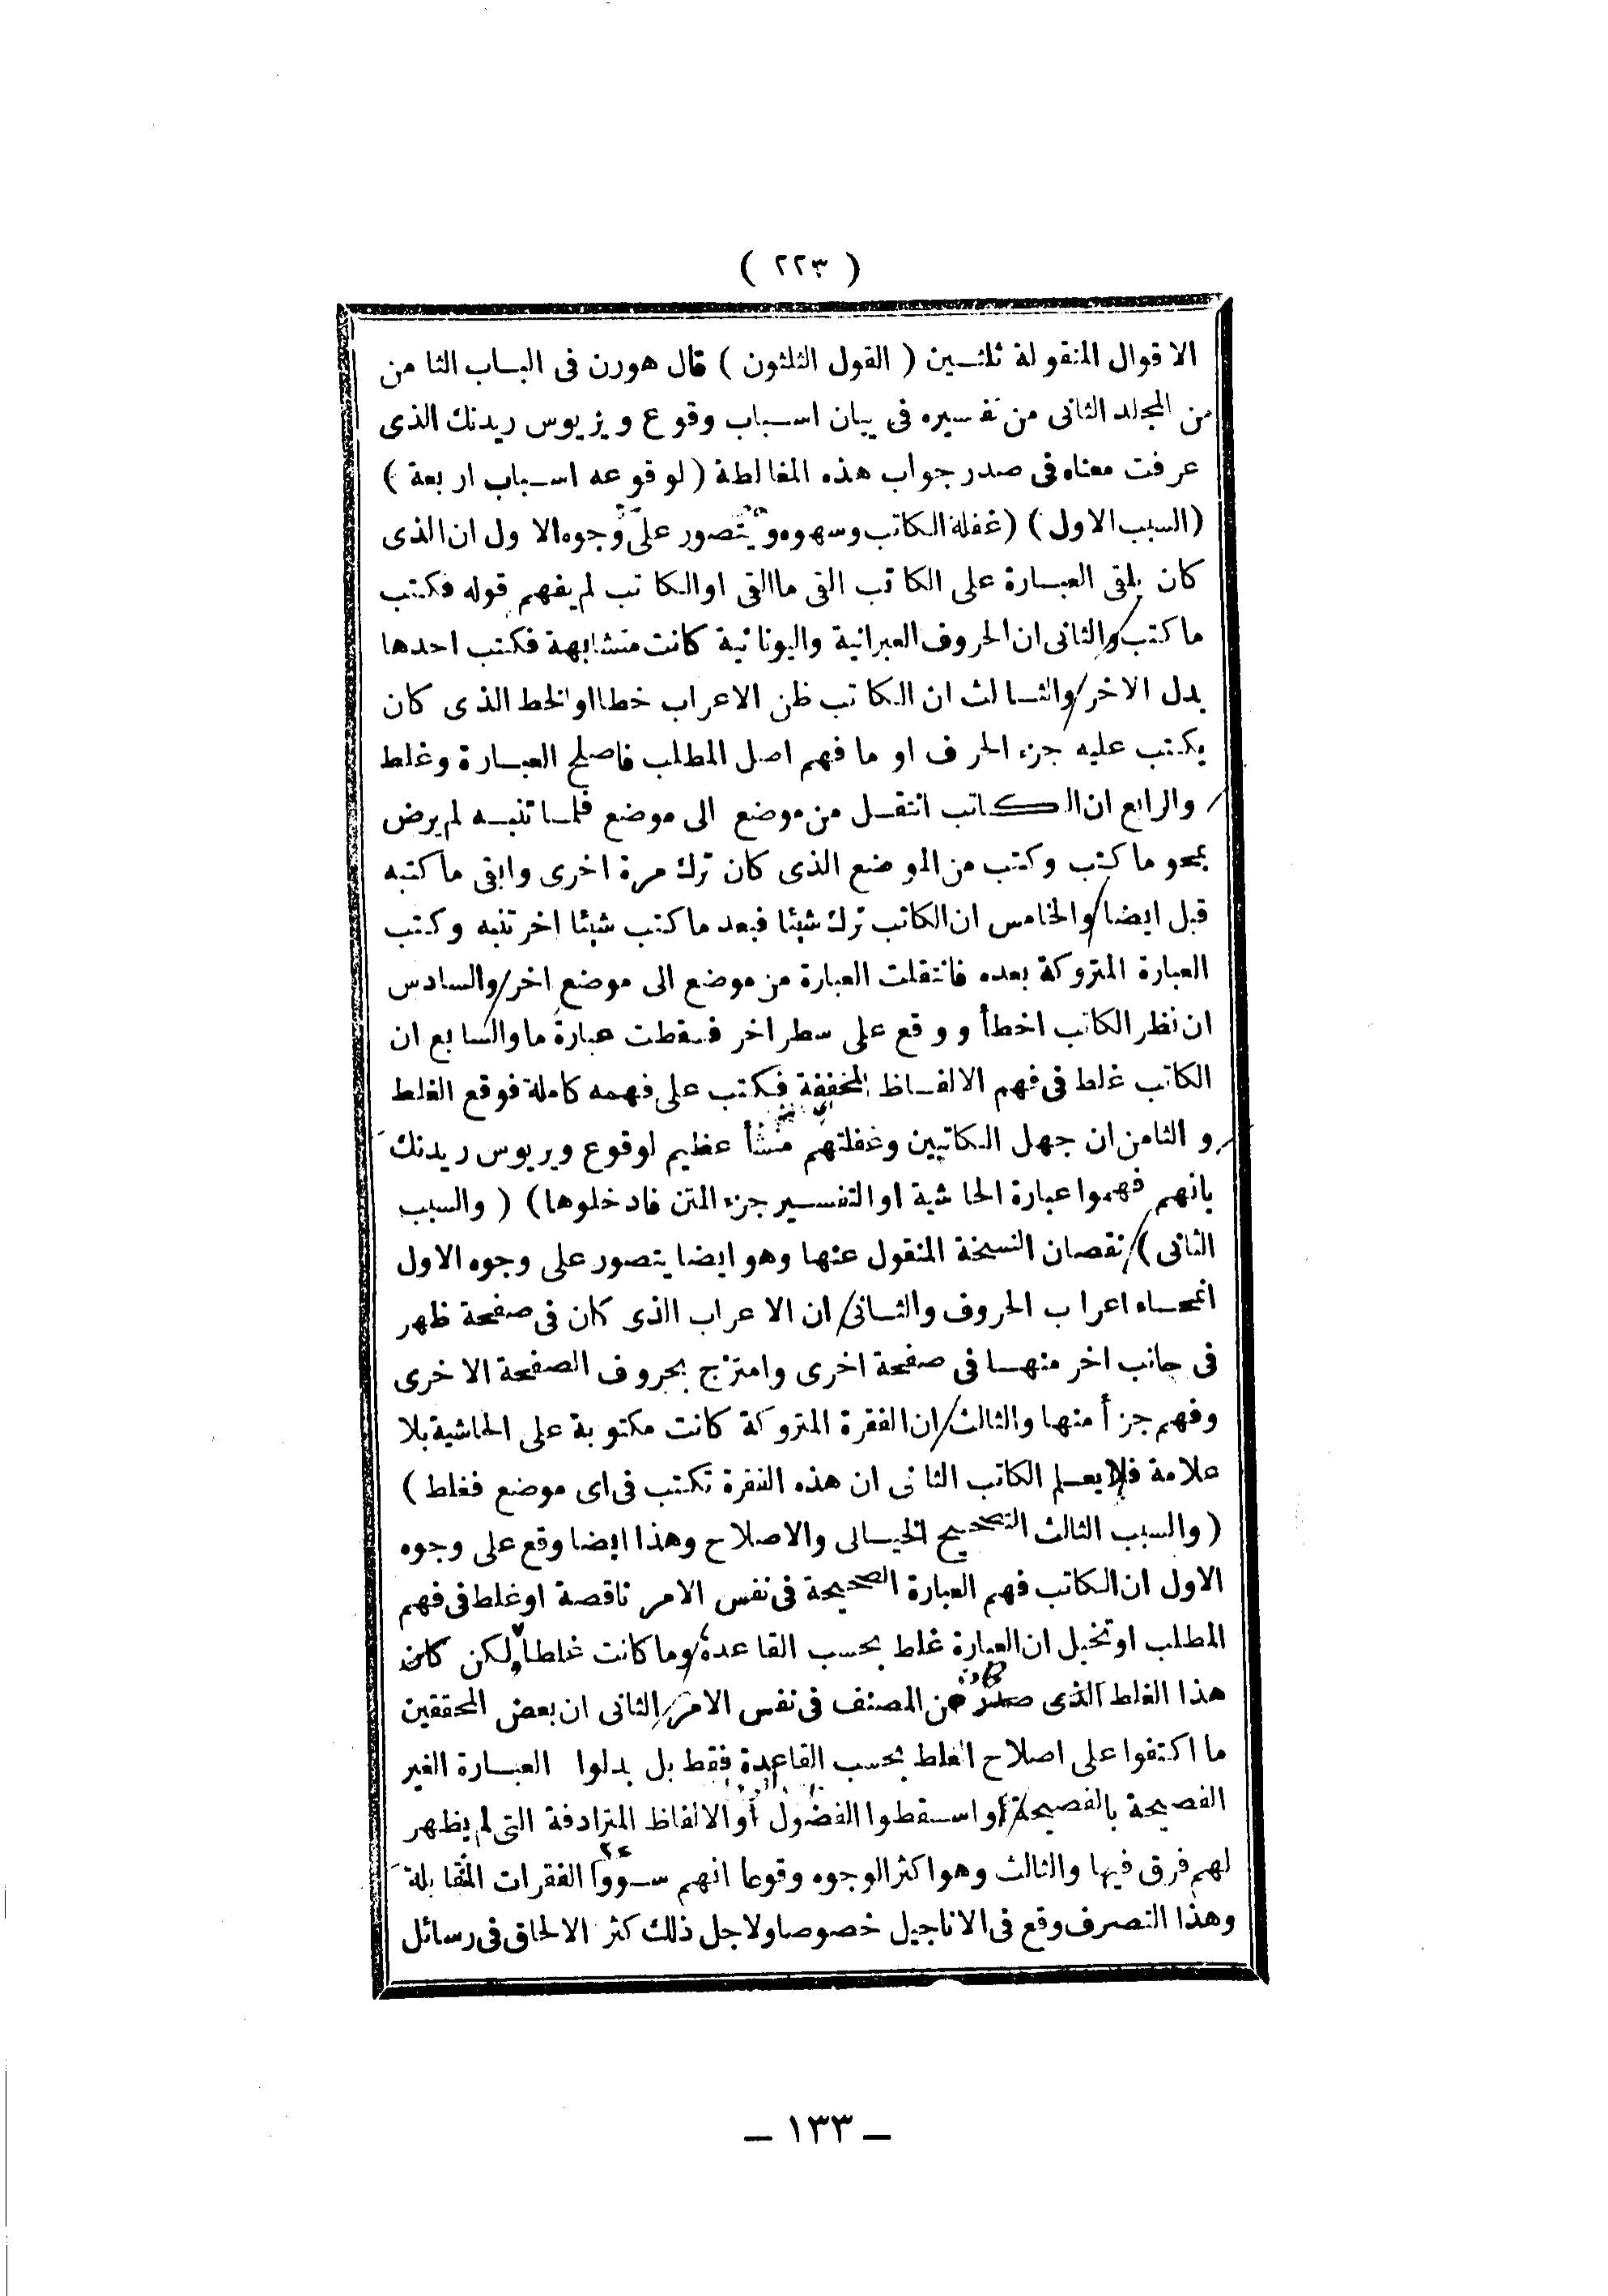 ( ٢٢٣ )
الاقوال المنقولة ثلثين ( القول الثلثون ) قال هورن فى الباب الثامن
من المجلد الثانى من تفسيره فى بيان اسباب وقوع ويزيوس ريدنك الذى
عرفت معناه فى صدر جواب هذه المغالطة ( لوقوعه اسباب اربعة )
(السبب الاول) (غفلة الكاتب وسهوه ويتصور على وجوه الاول ان الذى
كان يلقى العبارة على الكاتب القى ما القى او الكاتب لم يفهم قوله فكتب
ما كتب والثانى ان الحروف العبرانية واليونانية كانت متشابهة فكتب احدها
بدل الاخر والثالث ان الكاتب ظن الاعراب خطا او الخط الذى كان
يكتب عليه جزء الحرف او ما فهم اصل المطلب فاصلح العبارة وغلط
والرابع ان الكاتب انتقل من موضع الى موضع فلما تنبه لم يرض
بمحو ما كتب وكتب من الموضع الذى كان ترك مرة اخرى وابقى ما كتبه
قبل ايضا والخامس ان الكاتب ترك شيئا فبعد ما كتب شيئا اخر تنبه وكتب
العبارة المتروكة بعده فانتقلت العبارة من موضع الى موضع اخر والسادس
ان نظر الكاتب اخطأ ووقع على سطر اخر فسقطت عبارة ما والسابع ان
الكاتب غلط فى فهم الالفاظ المخففة فكتب على فهمه كاملة فوقع الغلط
والثامن ان جهل الكاتبين وغفلتهم منشأ عظيم لوقوع ويريوس ريدنك
بانهم فهموا عبارة الحاشية او التفسير جزء المتن فادخلوها) ( والسبب
الثانى ) نقصان النسخة المنقول عنها وهو ايضا يتصور على وجوه الاول
انمحاء اعراب الحروف والثانى ان الاعراب الذى كان فى صفحة ظهر
فى جانب اخر منها فى صفحة اخرى وامتزج بحروف الصفحة الاخرى
وفهم جزأ منها والثالث ان الفقرة المتروكة كانت مكتوبة على الحاشية بلا
علامة فلم يعلم الكاتب الثانى ان هذه الفقرة تكتب فى اى موضع فغلط )
( والسبب الثالث التصحيح الخيالى والاصلاح وهذا ايضا وقع على وجوه
الاول ان الكاتب فهم العبارة الصحيحة فى نفس الامر ناقصة او غلط فى فهم
المطلب او تخيل ان العبارة غلط بحسب القاعدة وما كانت غلطا ولكن كان
هذا الغلط الذى صدر من المصنف فى نفس الامر والثانى ان بعض المحققين
ما اكتفوا على اصلاح الغلط بحسب القاعدة فقط بل بدلوا العبارة الغير
الفصيحة بالفصيحة أو اسقطوا الفضول أو الالفاظ المترادفة التى لم يظهر
لهم فرق فيها والثالث وهو اكثر الوجوه وقوعا انهم سووا الفقرات المتقابلة
وهذا التصرف وقع فى الاناجيل خصوصا ولاجل ذلك كثر الالحاق فى رسائل
– ١٣٣ –